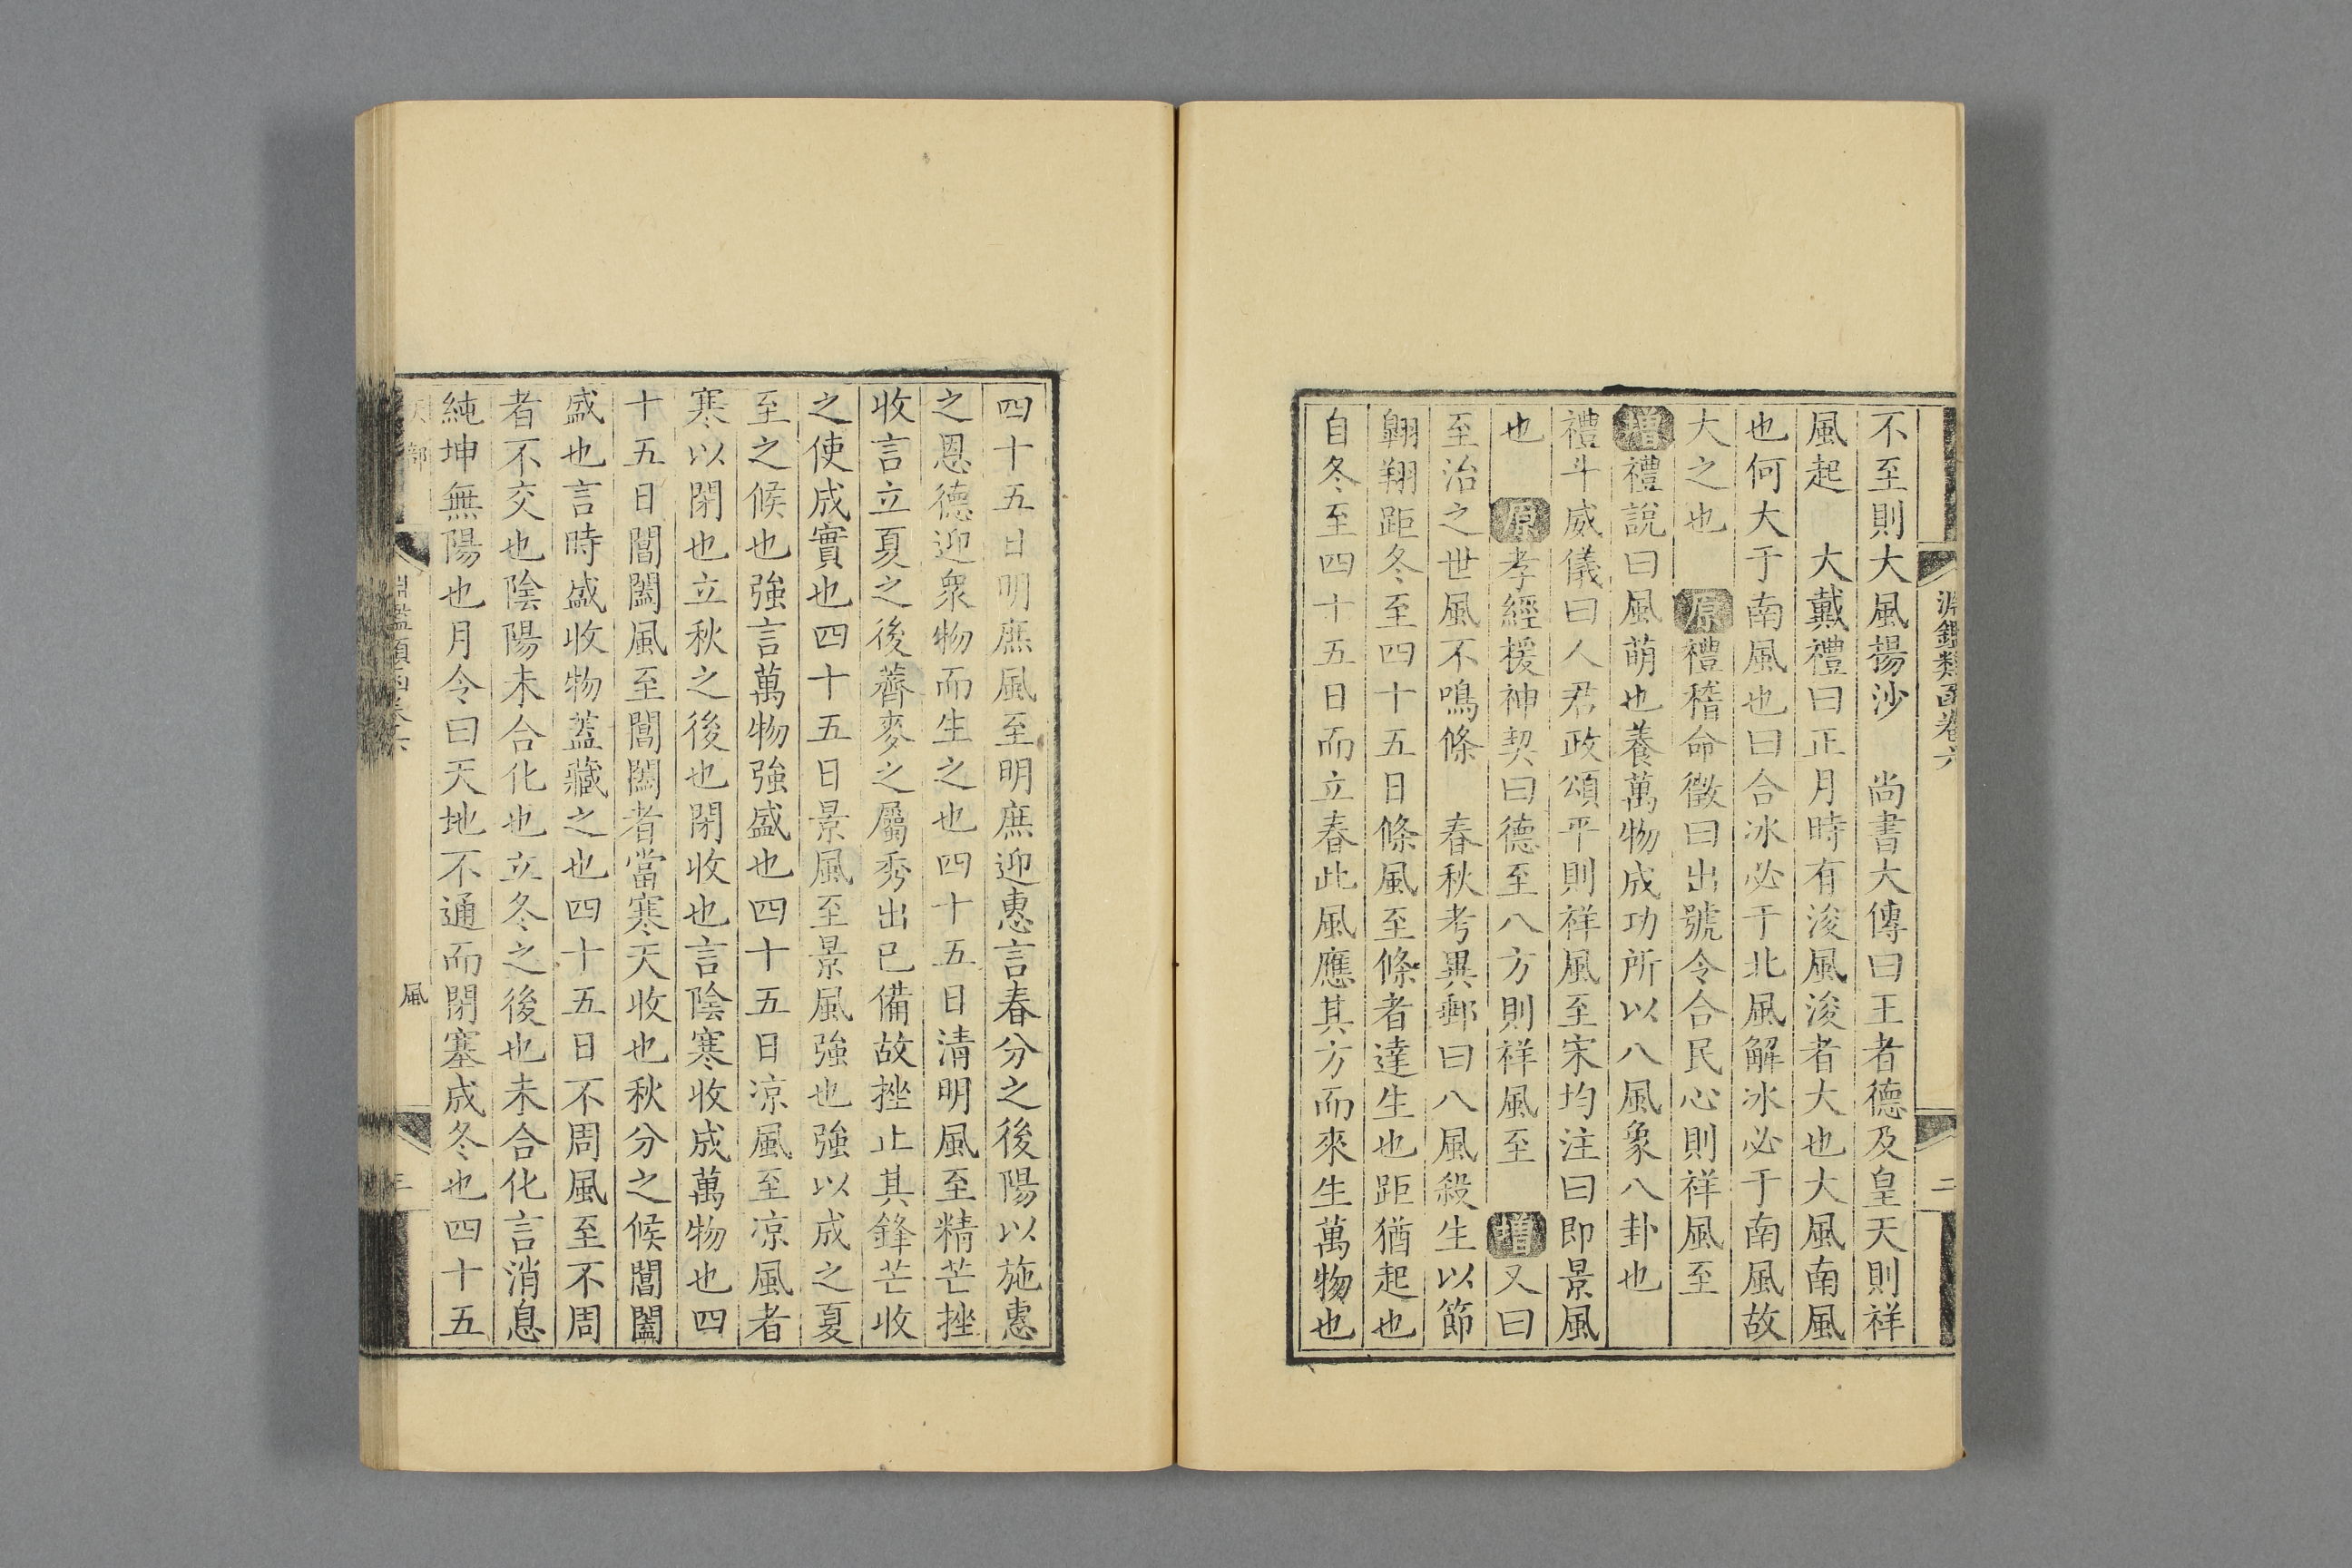 淵鑑類函卷六
二
不至則大風揚沙　尚書大傳曰王者德及皇天則祥
風起　大戴禮曰正月時有浚風浚者大也大風南風
也何大于南風也曰合冰必于北風解冰必于南風故
大之也　原禮稽命徵曰出號令合民心則祥風至
增禮說曰風萌也養萬物成功所以八風象八卦也
禮斗威儀曰人君政頌平則祥風至宋均注曰即景風
也　原孝經援神契曰德至八方則祥風至　增又曰
至治之世風不鳴條　春秋考異郵曰八風殺生以節
翱翔距冬至四十五日條風至條者達生也距猶起也
自冬至四十五日而立春此風應其方而來生萬物也
四十五日明庶風至明庶迎惠言春分之後陽以施惠
之恩德迎衆物而生之也四十五日清明風至精芒挫
收言立夏之後薺麥之屬秀出已備故挫止其鋒芒收
之使成實也四十五日景風至景風強也強以成之夏
至之候也強言萬物強盛也四十五日凉風至凉風者
寒以閉也立秋之後也閉收也言陰寒收成萬物也四
十五日閶闔風至閶闔者當寒天收也秋分之候閶闔
盛也言時盛收物蓋藏之也四十五日不周風至不周
者不交也陰陽未合化也立冬之後也未合化言消息
純坤無陽也月令曰天地不通而閉塞成冬也四十五
淵鑑類函卷六
風
三